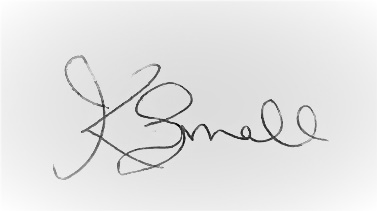 K Small